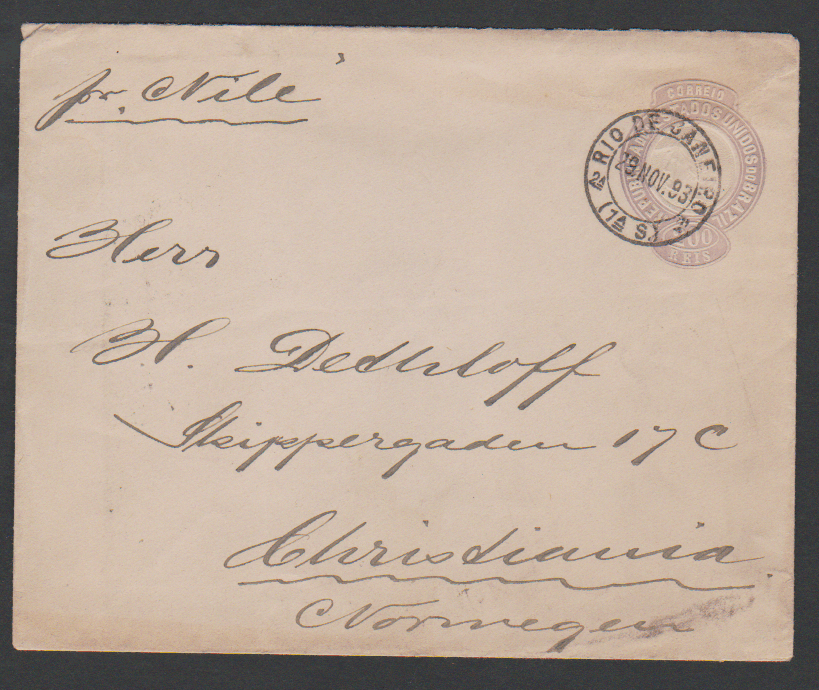 pr. "Nile"
CORREIO
ESTADOS UNIDOS DO BRAZIL
200
REIS
RIO DE JANEIRO
29.NOV.93
2ª (1ª S.) 2ª
Herr
H. Dethloff
Skippergaden 17 C
Christiania
Norwegen